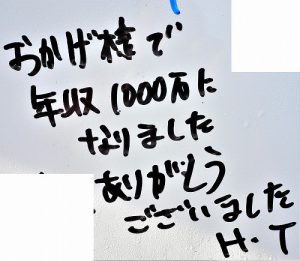 おかげ様で
年収1000万に
なりました
ありがとう
ございました
H.T